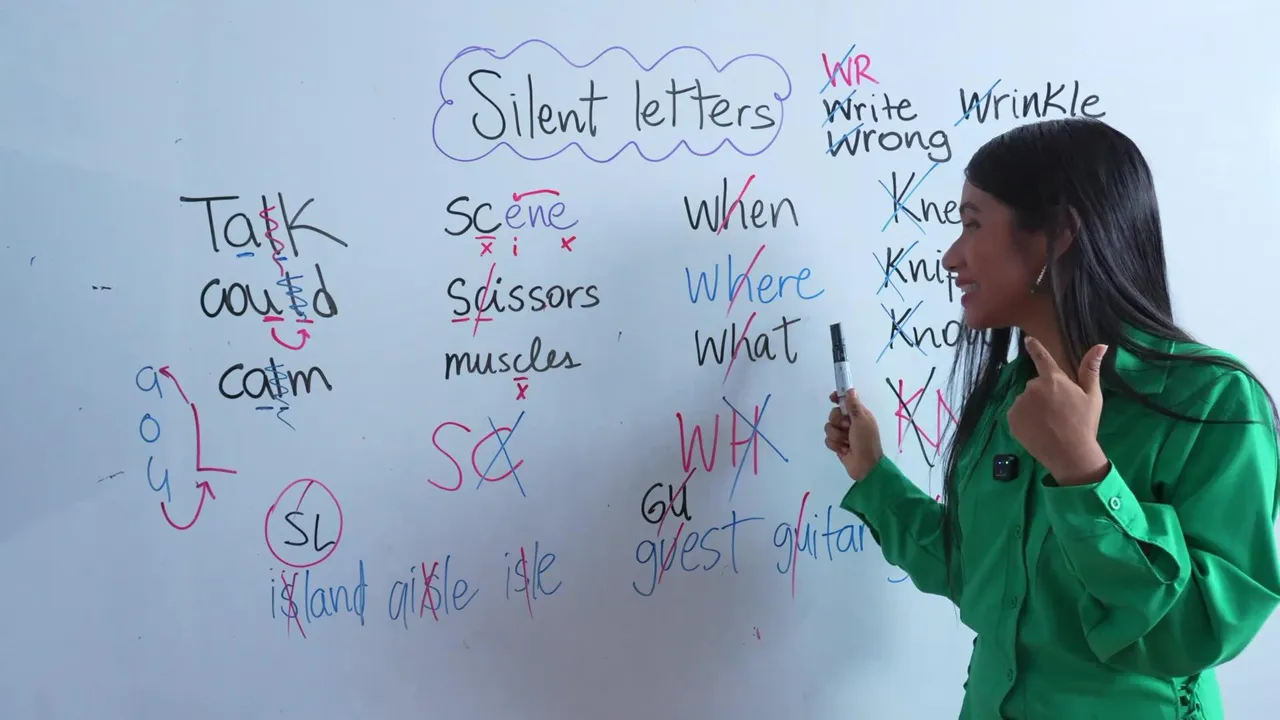 Silent letters
WR
Write Wrinkle
Wrong
Talk
could
calm
a
o
u
L
scene
x i x
scissors
muscles
x
SC
When
Where
What
WH
Kne
Knif
Know
KN
SL
island aisle isle
GU
guest guitar